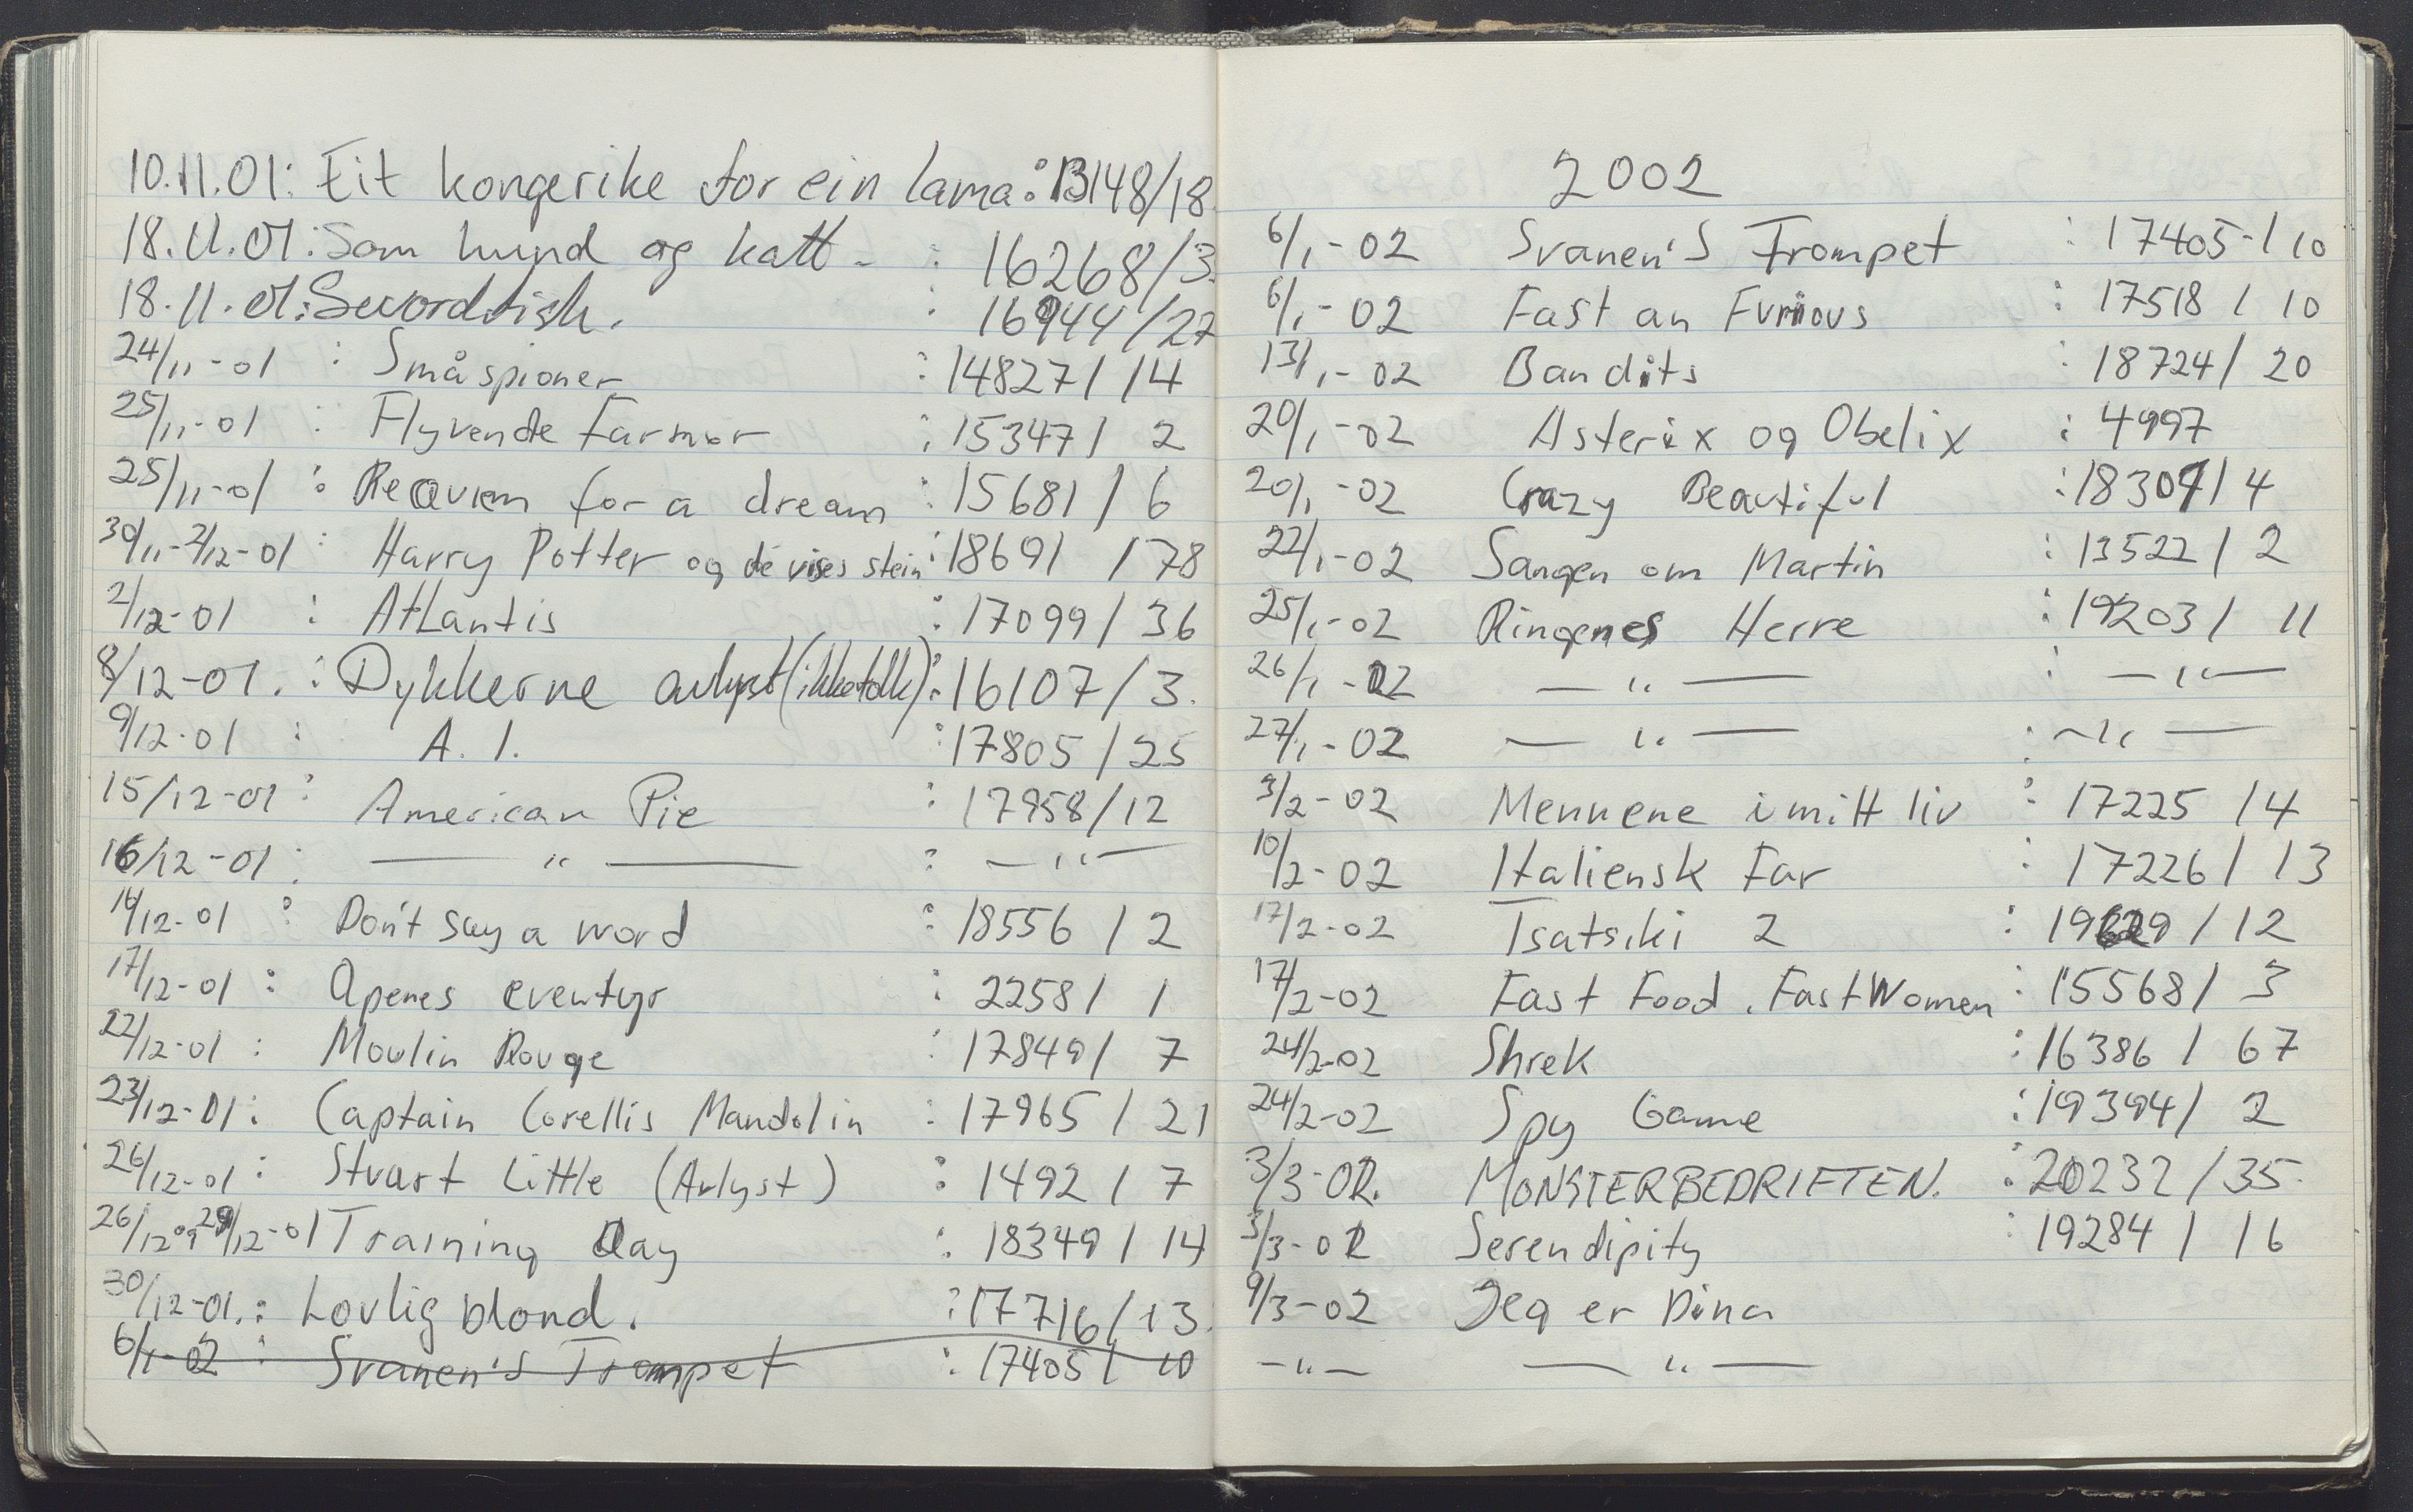 10.11.01: Eit kongerike for ein lama: 13148/18
18.11.01: Som hund og katt - : 16268/3
18.11.01: Swordfish. : 16944/27
24/11-01 : Småspioner : 14827 / 14
25/11-01 : Flyvende farmor : 15347 / 2
25/11-01 : Requiem for a dream : 15681 / 6
30/11-2/12-01 : Harry Potter og de vises stein : 18691 / 78
2/12-01 : Atlantis : 17099 / 36
8/12-01. : Dykkerne avlyst (ikke folk) : 16107 / 3.
9/12-01 : A. I. : 17805 / 25
15/12-01 : American Pie : 17958 / 12
16/12-01 : — " — : — " —
16/12-01 : Don't say a word : 18556 / 2
17/12-01 : Apenes eventyr : 2258 / 1
22/12-01 : Moulin Rouge : 17849 / 7
23/12-01 : Captain Corellis Mandolin : 17965 / 21
26/12-01 : Stuart Little (Avlyst) : 1492 / 7
26/12 og 29/12-01 Training Day : 18349 / 14
30/12-01. : Lovlig blond. : 17716 / 13.
6/1-02 : Svanen's Trompet : 17405 / 10
2002
6/1-02 Svanen's Trompet : 17405 - / 10
6/1-02 Fast an Furious : 17518 / 10
13/1-02 Bandits : 18724 / 20
20/1-02 Asterix og Obelix : 4997
20/1-02 Crazy Beautiful : 18307 / 4
22/1-02 Sangen om Martin : 13522 / 2
25/1-02 Ringenes Herre : 19203 / 11
26/1-02 — " — : — " —
27/1-02 — " — : — " —
3/2-02 Mennene i mitt liv : 17225 / 4
10/2-02 Italiensk Far : 17226 / 13
17/2-02 Tsatsiki 2 : / 12
17/2-02 Fast Food. Fast Women : 15568 / 3
24/2-02 Shrek : 16386 / 67
24/2-02 Spy Game : 19394 / 2
3/3-02. MONSTERBEDRIFTEN. : 20232 / 35.
3/3-02 Serendipity : 19284 / 16
9/3-02 Jeg er Dina
— " — — " —